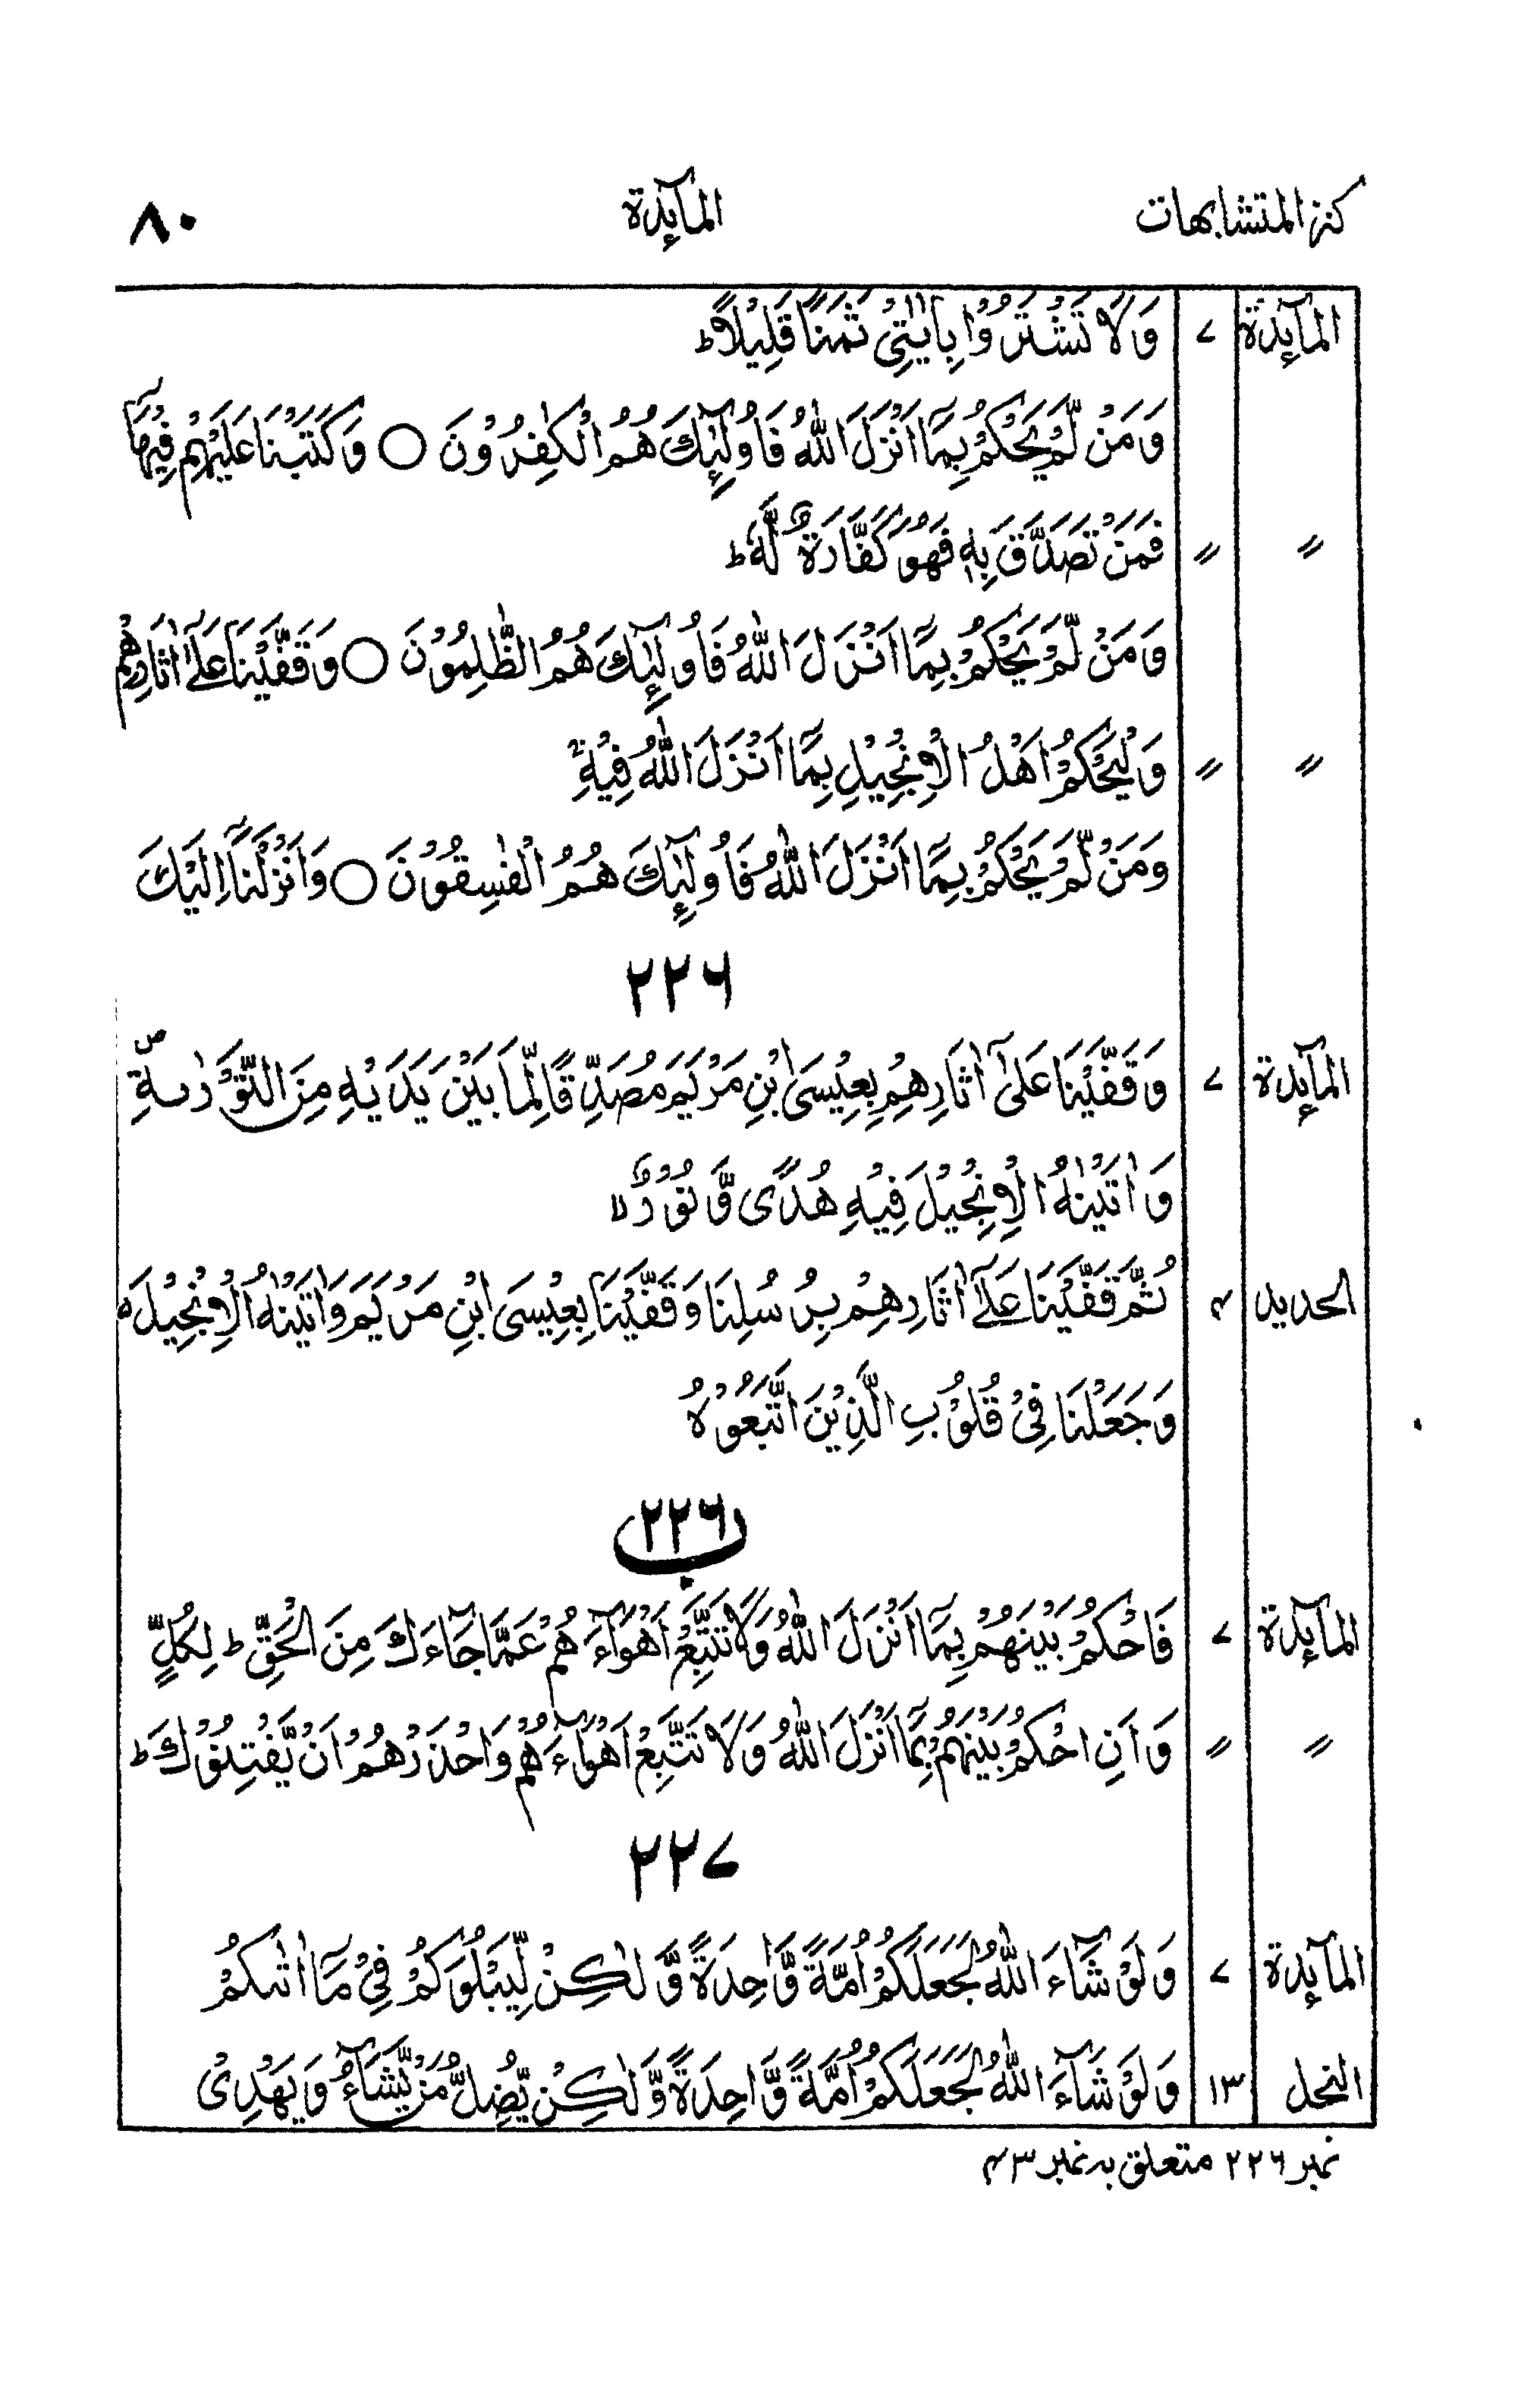 كنز المتشابهات المآئدة ٨٠
المآئدة ٧ وَلَا تَشْتَرُوْا بِاٰيٰتِيْ ثَمَنًا قَلِيْلًا ؕ
وَمَنْ لَّمْ يَحْكُمْ بِمَآ اَنْزَلَ اللّٰهُ فَاُولٰٓئِكَ هُمُ الْكٰفِرُوْنَ ○ وَكَتَبْنَا عَلَيْهِمْ فِيْهَآ
〃 〃 فَمَنْ تَصَدَّقَ بِهٖ فَهُوَ كَفَّارَةٌ لَّهٗ ؕ
وَمَنْ لَّمْ يَحْكُمْ بِمَآ اَنْزَلَ اللّٰهُ فَاُولٰٓئِكَ هُمُ الظّٰلِمُوْنَ ○ وَقَفَّيْنَا عَلٰٓى اٰثَارِهِمْ
〃 〃 وَلْيَحْكُمْ اَهْلُ الْاِنْجِيْلِ بِمَآ اَنْزَلَ اللّٰهُ فِيْهِ ؕ
وَمَنْ لَّمْ يَحْكُمْ بِمَآ اَنْزَلَ اللّٰهُ فَاُولٰٓئِكَ هُمُ الْفٰسِقُوْنَ ○ وَاَنْزَلْنَآ اِلَيْكَ
٢٢٦
المآئدة ٧ وَقَفَّيْنَا عَلٰٓى اٰثَارِهِمْ بِعِيْسَى ابْنِ مَرْيَمَ مُصَدِّقًا لِّمَا بَيْنَ يَدَيْهِ مِنَ التَّوْرٰىةِ ۪
وَاٰتَيْنٰهُ الْاِنْجِيْلَ فِيْهِ هُدًى وَّنُوْرٌ ۙ
الحديد ٤ ثُمَّ قَفَّيْنَا عَلٰٓى اٰثَارِهِمْ بِرُسُلِنَا وَقَفَّيْنَا بِعِيْسَى ابْنِ مَرْيَمَ وَاٰتَيْنٰهُ الْاِنْجِيْلَ
وَجَعَلْنَا فِيْ قُلُوْبِ الَّذِيْنَ اتَّبَعُوْهُ
٢٢٦ ب
المآئدة ٧ فَاحْكُمْ بَيْنَهُمْ بِمَآ اَنْزَلَ اللّٰهُ وَلَا تَتَّبِعْ اَهْوَآءَهُمْ عَمَّا جَآءَكَ مِنَ الْحَقِّ ؕ لِكُلٍّ
〃 〃 وَاَنِ احْكُمْ بَيْنَهُمْ بِمَآ اَنْزَلَ اللّٰهُ وَلَا تَتَّبِعْ اَهْوَآءَهُمْ وَاحْذَرْهُمْ اَنْ يَّفْتِنُوْكَ ؕ
٢٢٧
المآئدة ٧ وَلَوْ شَآءَ اللّٰهُ لَجَعَلَكُمْ اُمَّةً وَّاحِدَةً وَّلٰكِنْ لِّيَبْلُوَكُمْ فِيْ مَآ اٰتٰىكُمْ
النحل ١٣ وَلَوْ شَآءَ اللّٰهُ لَجَعَلَكُمْ اُمَّةً وَّاحِدَةً وَّلٰكِنْ يُّضِلُّ مَنْ يَّشَآءُ وَيَهْدِيْ
نمبر ٢٢٦ متعلق بہ نمبر ٤٣